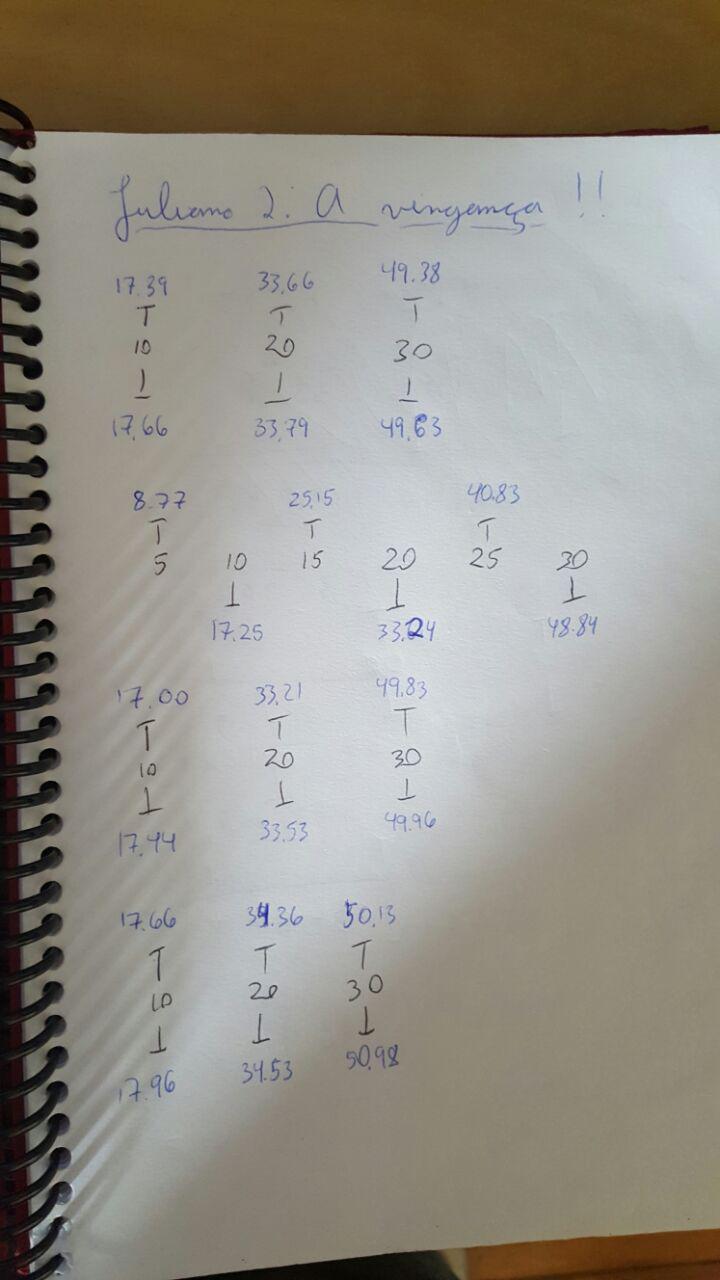 Juliano 2: A vingança !!
17.39 33.66 49.38
T T T
10 20 30
⊥ ⊥ ⊥
17.66 33.79 49.63
8.77 25.15 40.83
T T T
5 10 15 20 25 30
⊥ ⊥ ⊥
17.25 33.24 48.84
17.00 33.21 49.83
T T T
10 20 30
⊥ ⊥ ⊥
17.44 33.53 49.96
17.66 34.36 50.13
T T T
10 20 30
⊥ ⊥ ⊥
17.96 34.53 50.98